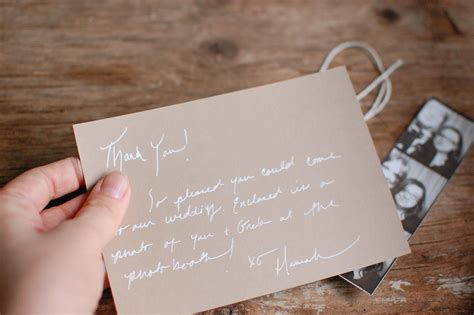 Thank You!
So pleased you could come
to our wedding. Enclosed is a
photo of you + Gretn at the
photobooth! xo Hannah